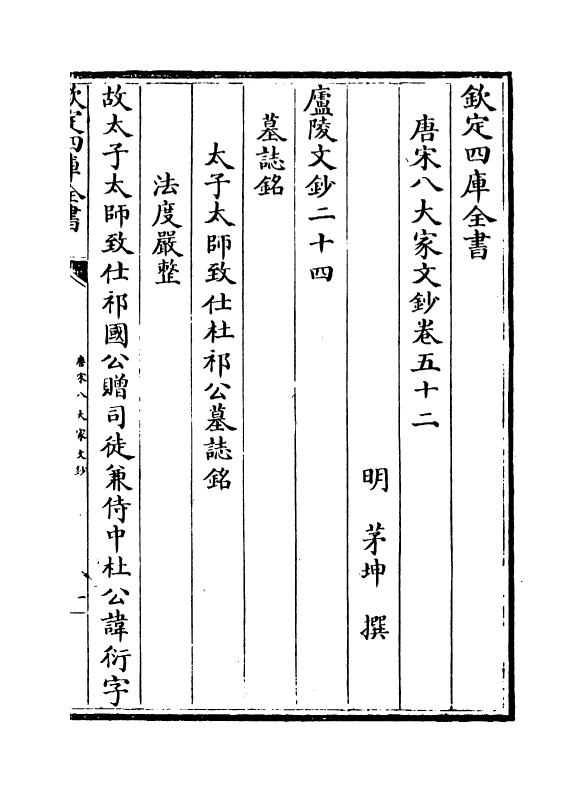 欽定四庫全書
唐宋八大家文鈔卷五十二
明 茅坤 撰
廬陵文鈔二十四
墓誌銘
太子太師致仕杜祁公墓誌銘
法度嚴整
故太子太師致仕祁國公贈司徒兼侍中杜公諱衍字
欽定四庫全書
唐宋八大家文鈔
一